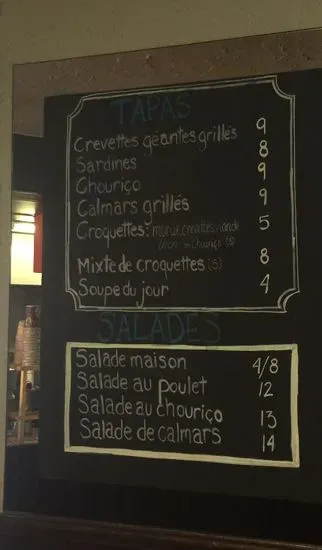 TAPAS
Crevettes géantes grillés 9
Sardines 8
Chouriço 9
Calmars grillés 9
Croquettes: morue, crevettes, viande 5
ou Chouriço (5)
Mixte de croquettes (5) 8
Soupe du jour 4
SALADES
Salade maison 4/8
Salade au poulet 12
Salade au chouriço 13
Salade de calmars 14